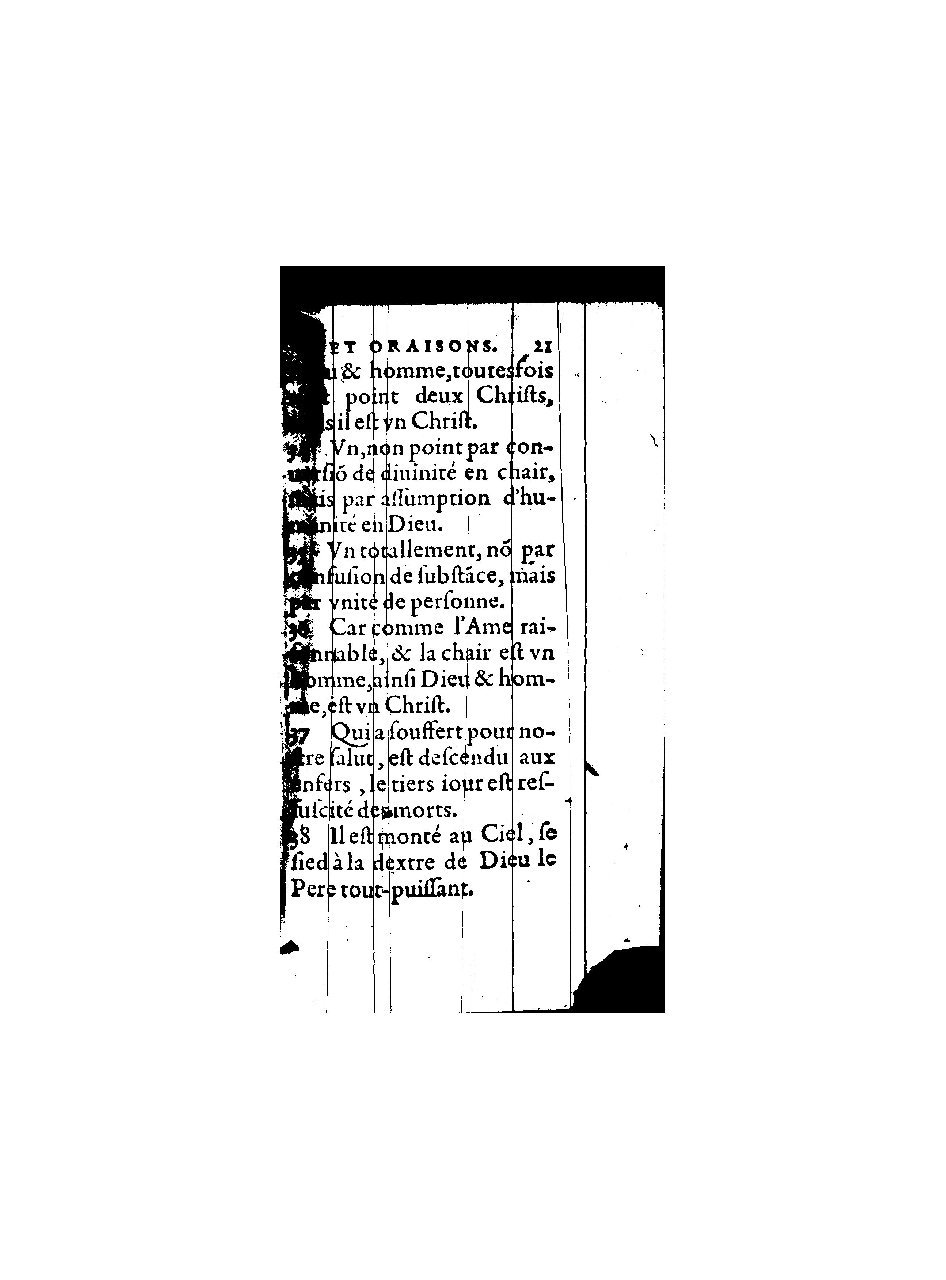 ET ORAISONS. 21
& homme,toutesfois
point deux Chriſts,
il eſt vn Chriſt.
Vn,non point par con-
uerſiõ de diuinité en chair,
par aſſumption d'hu-
manité en Dieu.
Vn totallement, nõ par
confuſion de ſubſtãce, mais
par vnité de perſonne.
36 Car comme l'Ame rai-
ſonnable, & la chair eſt vn
homme,ainſi Dieu & hom-
me,eſt vn Chriſt.
37 Qui a ſouffert pour no-
ſtre ſalut, eſt deſcendu aux
enfers , le tiers iour eſt reſ-
ſuſcité des morts.
38 Il eſt monté au Ciel, ſe
ſied à la dextre de Dieu le
Pere tout-puiſſant.